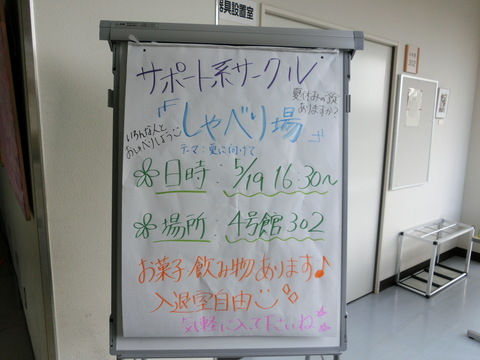 器具設置室
サポート系サークル
夏休みの予定
ありますか?
『しゃべり場』
いろんな人と
おしゃべりしよう
テーマ:夏に向けて
日時:5/19 16:30~
場所:4号館302
お菓子飲み物あります♪
入退室自由
気軽に入って下さいね